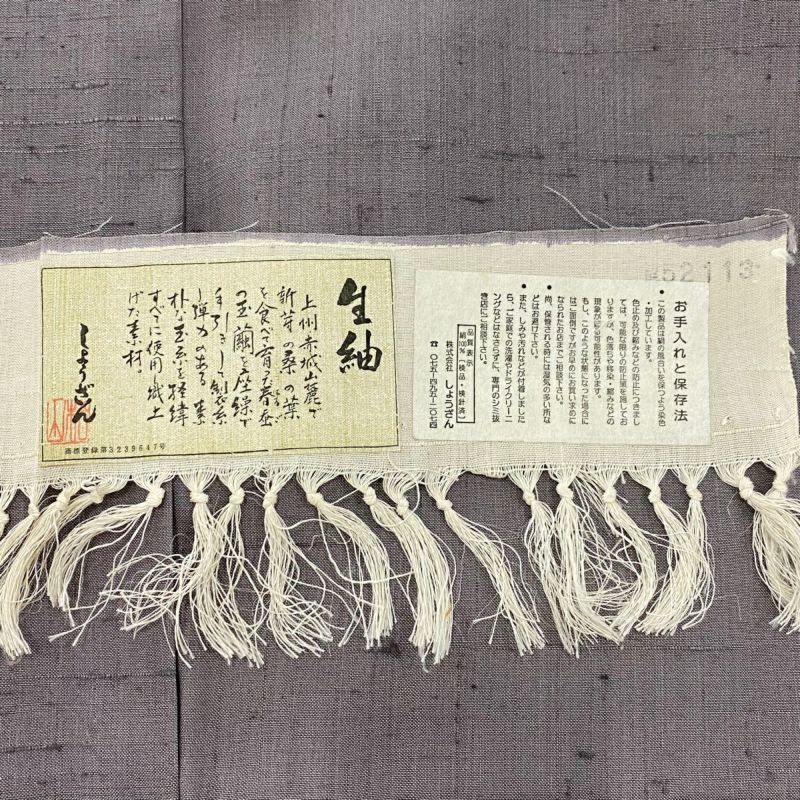 生紬
上州赤城山麓で
新芽の桑の葉
を食べて育った春蚕
の玉繭を座繰で
手引きして製糸
し弾力のある素
朴な玉糸を経緯
すべに使用し織上
げた素材
しょうざん
商標登録第3239647号
M52113
お手入れと保存法
●この製品は絹の風合いを保つよう染色
・加工しています。
色止め及び縮みなどの防止につきまし
ては、可能な限りの防止策を施してお
りますが、色落ちや移染・縮みなどの
現象が起る可能性があります。
もし、このような状態になった場合に
はご面倒ですがお早めにお買い求めに
なられたお店までご相談下さい。
●尚、保管される時には湿気の多い所な
どはお避け下さい。
●また、しみや汚れなどが付着しました
ら、ご家庭での洗濯やドライクリーニ
ングなどはなさらずに、専門のシミ抜
き店にご相談下さい。
品質表示
絹100%(検品・検針済)
株式会社 しょうざん
☎〇七五-四九五-二〇七四